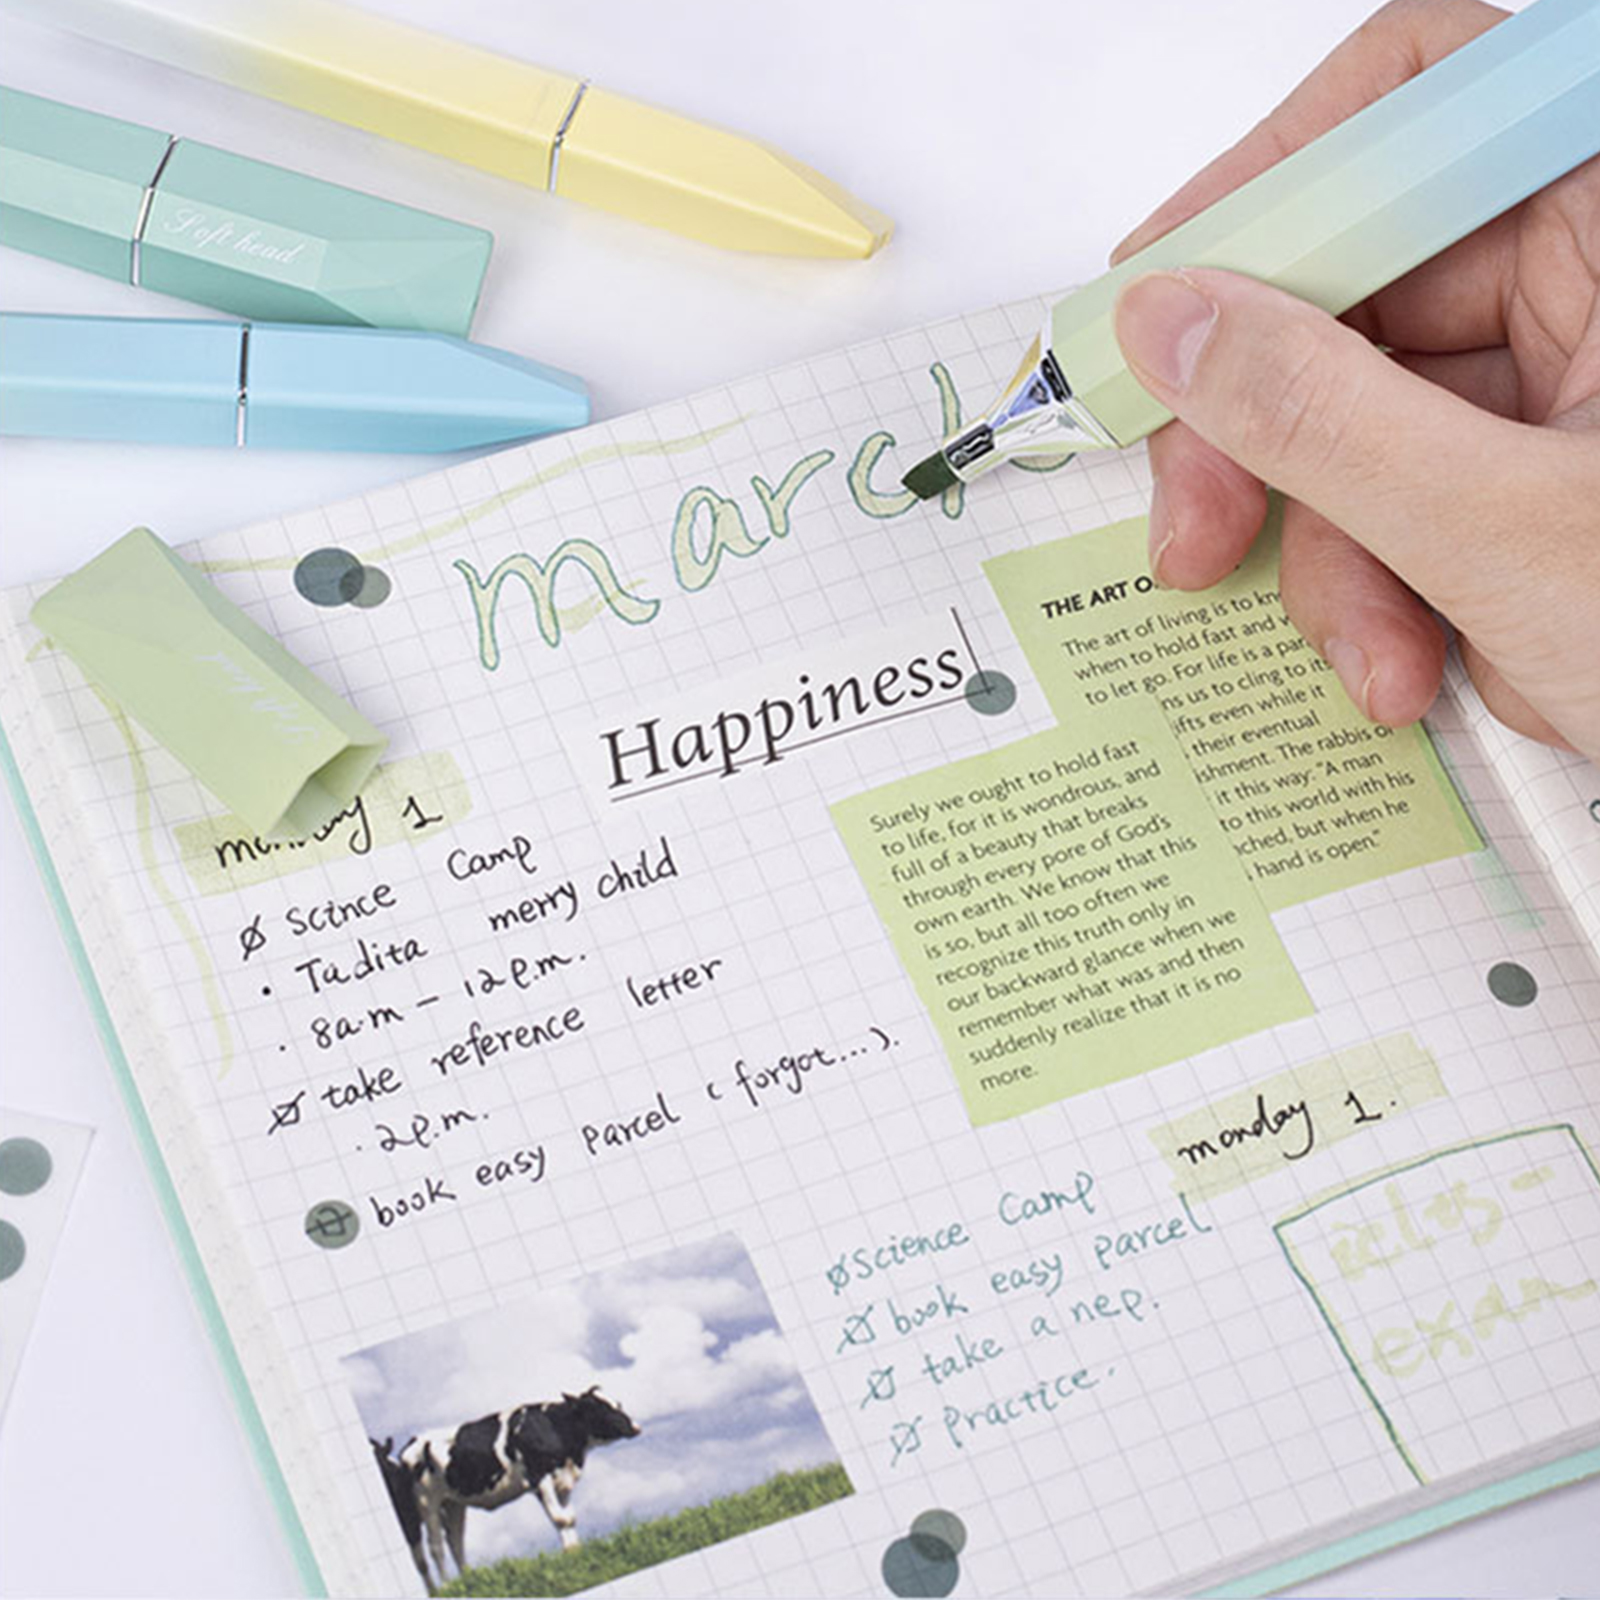 Soft head
march
Happiness
THE ART O
The art of living is to kn
when to hold fast and w
to let go. For life is a par
ns us to cling to its
ifts even while it
their eventual
ishment. The rabbis of
it this way: "A man
to this world with his
ched, but when he
hand is open."
Surely we ought to hold fast
to life, for it is wondrous, and
full of a beauty that breaks
through every pore of God's
own earth. We know that this
is so, but all too often we
recognize this truth only in
our backward glance when we
remember what was and then
suddenly realize that it is no
more.
monday 1
Scince Camp
• Tadita merry child
. 8a.m - 12p.m.
take reference letter
. 2p.m.
book easy parcel (forgot...).
monday 1.
Science Camp
book easy parcel
take a nep.
practice.
ielts -
exam